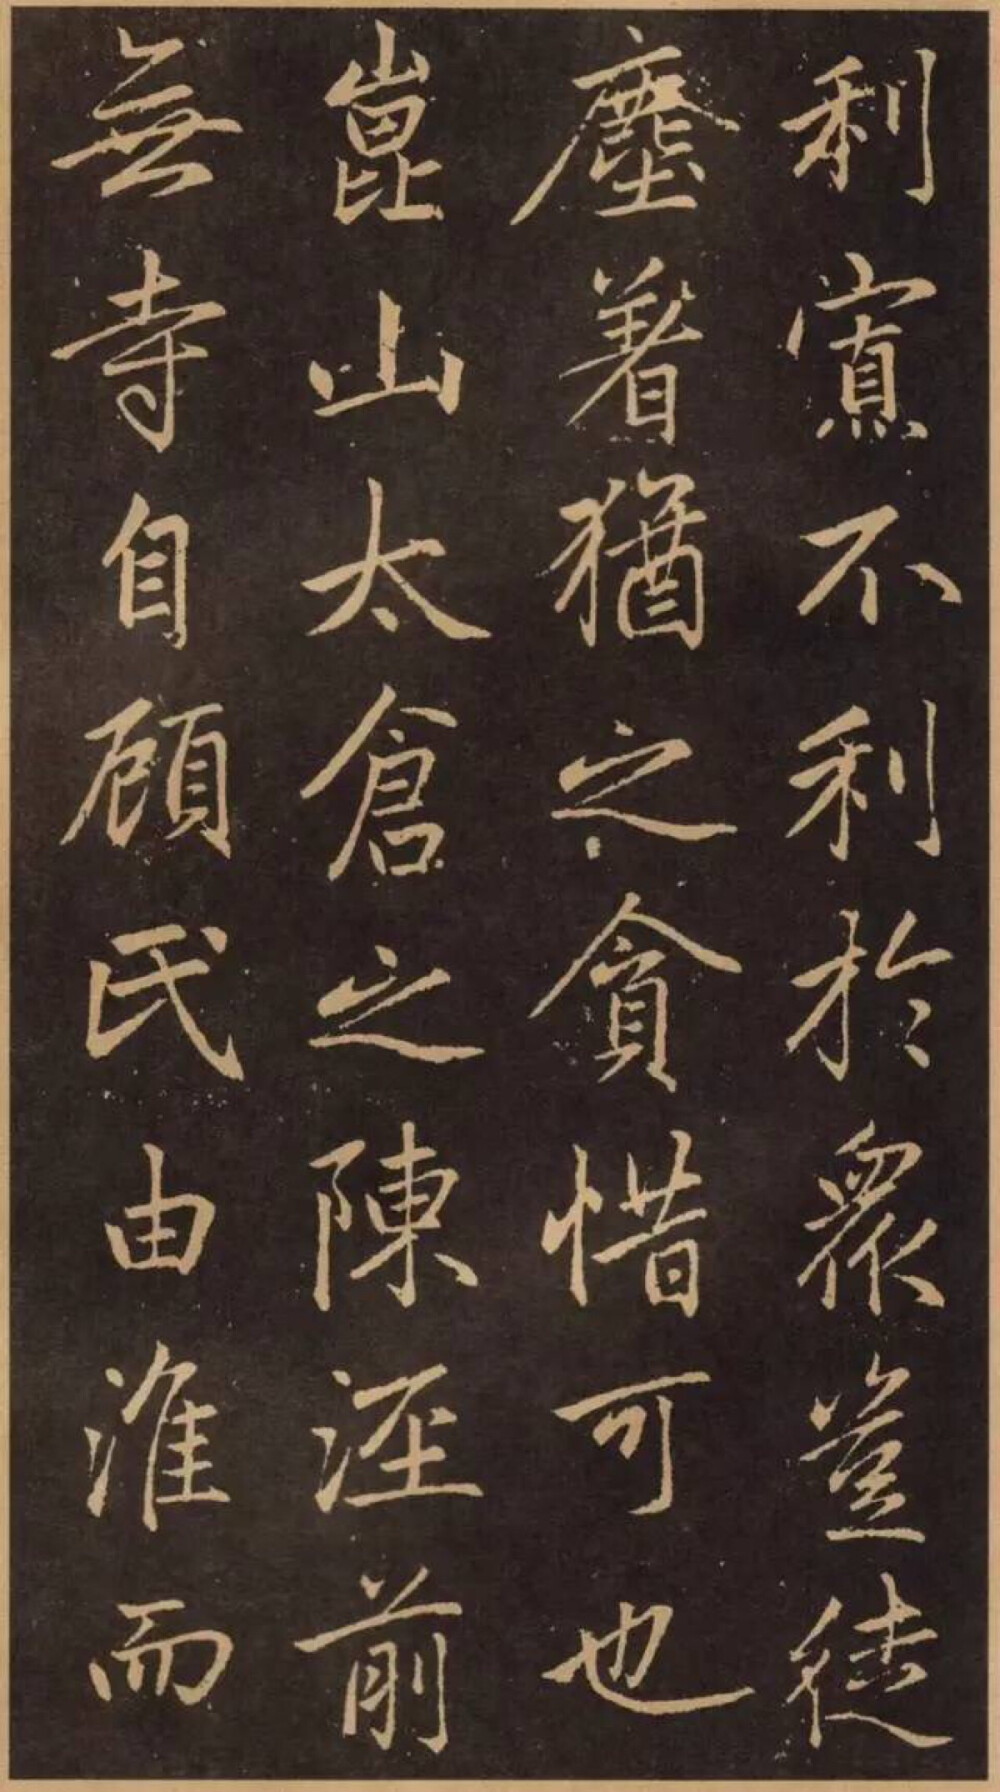 利寘不利於眾豈徒
塵著猶之貪惜可也
崑山太倉之陳涇前
無寺自顧氏由淮而